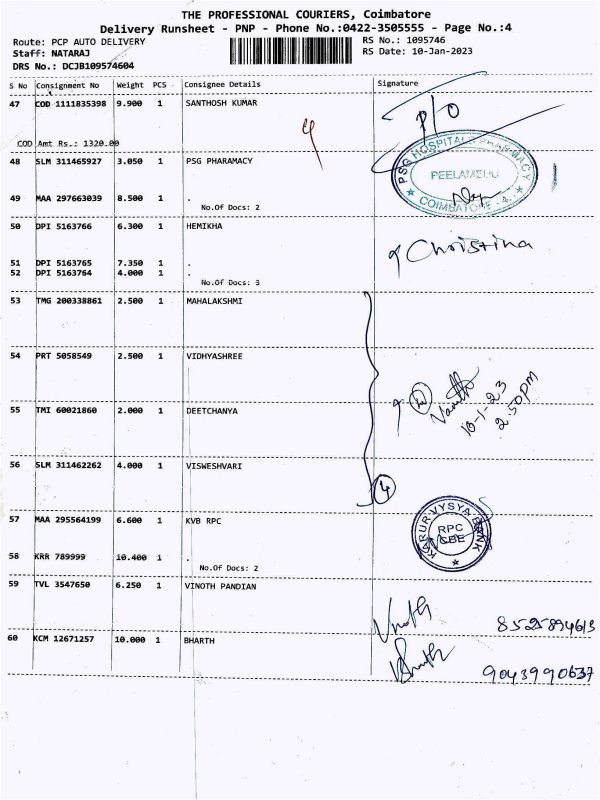 THE PROFESSIONAL COURIERS, Coimbatore
Delivery Runsheet - PNP - Phone No.:0422-3505555 - Page No.:4
Route: PCP AUTO DELIVERY RS No.: 1095746
Staff: NATARAJ RS Date: 10-Jan-2023
DRS No.: DCJB109574604
S No Consignment No Weight PCS Consignee Details Signature
47 COD 1111835398 9.900 1 SANTHOSH KUMAR
P/O
COD Amt Rs.: 1320.00
48 SLM 311465927 3.050 1 PSG PHARAMACY
PSG HOSPITALS PHARMACY
PEELAMEDU
COIMBATORE - 4.
49 MAA 297663039 8.500 1 .
No.Of Docs: 2
50 DPI 5163766 6.300 1 HEMIKHA
Christina
51 DPI 5163765 7.350 1 .
52 DPI 5163764 4.000 1 .
No.Of Docs: 3
53 TMG 200338861 2.500 1 MAHALAKSHMI
54 PRT 5058549 2.500 1 VIDHYASHREE
10-1-23
2.50PM
55 TMI 60021860 2.000 1 DEETCHANYA
56 SLM 311462262 4.000 1 VISWESHVARI
4
57 MAA 295564199 6.600 1 KVB RPC
KARUR VYSYA BANK
RPC
CBE
58 KRR 789999 10.400 1 .
No.Of Docs: 2
59 TVL 3547650 6.250 1 VINOTH PANDIAN
Vinoth 8525894613
60 KCM 12671257 10.000 1 BHARTH
9043990637